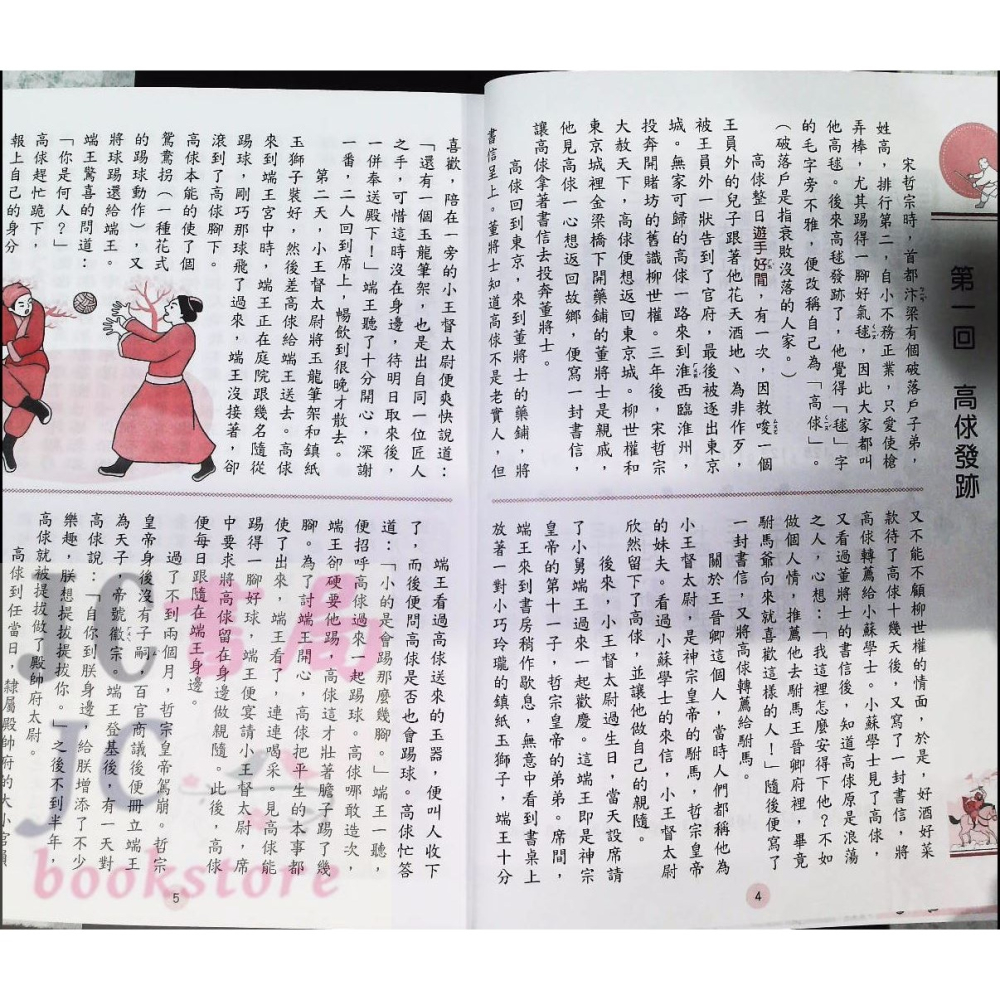 第一回　高俅發跡
宋哲宗時，首都汴梁有個破落戶子弟，
姓高，排行第二，自小不務正業，只愛使槍
弄棒，尤其踢得一腳好氣毬，因此大家都叫
他高毬。後來高毬發跡了，他覺得「毬」字
的毛字旁不雅，便改稱自己為「高俅」。
（破落戶是指衰敗沒落的人家。）
高俅整日遊手好閒，有一次，因教唆一個
王員外的兒子跟著他花天酒地、為非作歹，
被王員外一狀告到了官府，最後被逐出東京
城。無家可歸的高俅一路來到淮西臨淮州，
投奔開賭坊的舊識柳世權。三年後，宋哲宗
大赦天下，高俅便想返回東京城。柳世權和
東京城裡金梁橋下開藥鋪的董將士是親戚，
他見高俅一心想返回故鄉，便寫一封書信，
讓高俅拿著書信去投奔董將士。
高俅回到東京，來到董將士的藥鋪，將
書信呈上。董將士知道高俅不是老實人，但
又不能不顧柳世權的情面，於是，好酒好菜
款待了高俅十幾天後，又寫了一封書信，將
高俅轉薦給小蘇學士。小蘇學士見了高俅，
又看過董將士的書信後，知道高俅原是浪蕩
之人，心想：「我這裡怎麼安得下他？不如
做個人情，推薦他去駙馬王晉卿府裡，畢竟
駙馬爺向來就喜歡這樣的人！」隨後便寫了
一封書信，又將高俅轉薦給駙馬。
關於王晉卿這個人，當時人們都稱他為
小王督太尉，是神宗皇帝的駙馬，哲宗皇帝
的妹夫。看過小蘇學士的來信，小王督太尉
欣然留下了高俅，並讓他做自己的親隨。
後來，小王督太尉過生日，當天設席請
了小舅端王過來一起歡慶。這端王即是神宗
皇帝的第十一子，哲宗皇帝的弟弟。席間，
端王來到書房稍作歇息，無意中看到書桌上
放著一對小巧玲瓏的鎮紙玉獅子，端王十分
4
喜歡，陪在一旁的小王督太尉便爽快說道：
「還有一個玉龍筆架，也是出自同一位匠人
之手，可惜這時沒在身邊，待明日取來後，
一併奉送殿下！」端王聽了十分開心，深謝
一番，二人回到席上，暢飲到很晚才散去。
第二天，小王督太尉將玉龍筆架和鎮紙
玉獅子裝好，然後差高俅給端王送去。高俅
來到端王宮中時，端王正在庭院跟幾名隨從
踢球，剛巧那球飛了過來，端王沒接著，卻
滾到了高俅腳下。
高俅本能的使了個
鴛鴦拐（一種花式
的踢球動作），又
將球踢還給端王。
端王驚喜的問道：
「你是何人？」
高俅趕忙跪下，
報上自己的身分
端王看過高俅送來的玉器，便叫人收下
了，而後便問高俅是否也會踢球。高俅忙答
道：「小的是會踢那麼幾腳。」端王一聽，
便招呼高俅過來一起踢球。高俅哪敢造次，
端王卻硬要他踢，高俅這才壯著膽子踢了幾
腳。為了討端王開心，高俅把平生的本事都
使了出來，端王看了，連連喝采。見高俅能
踢得一腳好球，端王便宴請小王督太尉，席
中要求將高俅留在身邊做親隨。此後，高俅
便每日跟隨在端王身邊。
過了不到兩個月，哲宗皇帝駕崩。哲宗
皇帝身後沒有子嗣，百官商議後便冊立端王
為天子，帝號徽宗。端王登基後，有一天對
高俅說：「自你到朕身邊，給朕增添了不少
樂趣，朕想提拔提拔你。」之後不到半年，
高俅就被提拔做了殿帥府太尉。
高俅到任當日，隸屬殿帥府的大小官員
5
JC書局
JC
bookstore